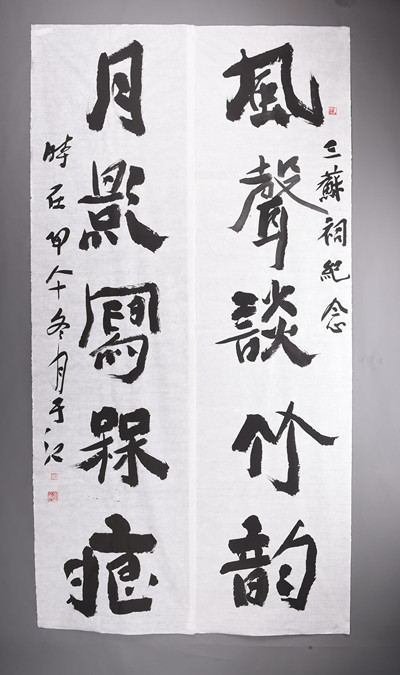 三蘇祠紀念
風聲談竹韵
月影寫槑痕
時在甲午冬月于江